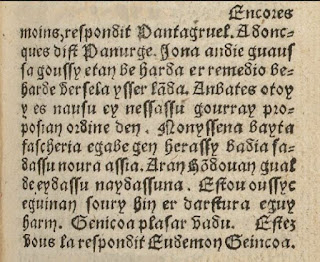 Encores
moins, respondit Pantagruel. Adonc-
ques dist Panurge. Jona andie guaus
sa goussy etan be harda er remedio be-
harde versela ysser lāda. Anbates otoy
y es nausu ey nessassu gourray pro-
posian ordine den. Nonyssena bayta
fascheria egabe gen herassy badia sa-
dassu noura assia. Aran Hōdouan gual
de eydassu naydassuna. Estou oussyc
eguinan soury hin er darstura eguy
harm. Genicoa plasar vadu. Estez
vous la respondit Eudemon Geincoa.